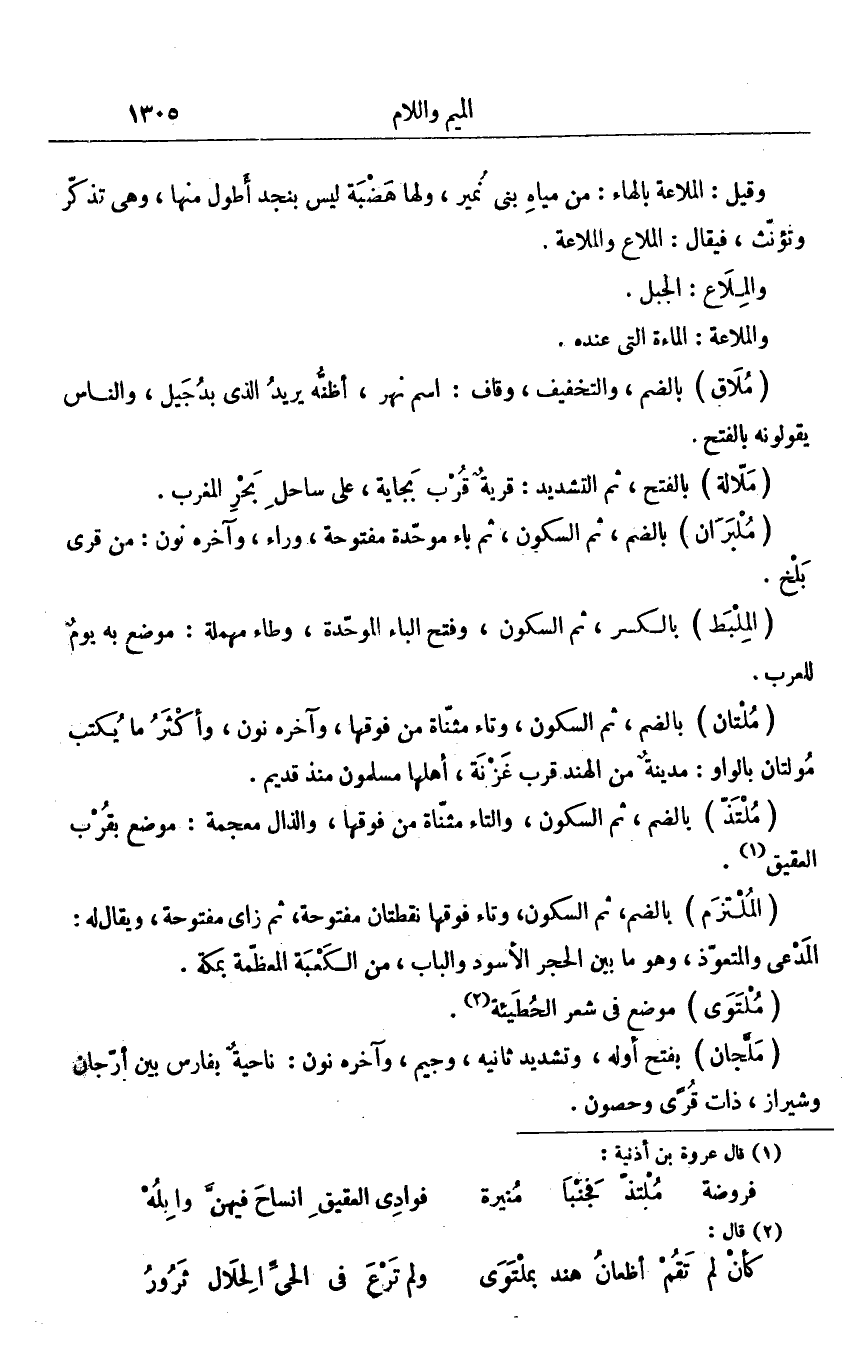 الميم واللام ١٣٠٥
وقيل : الملاعة بالهاء : من مياهِ بنى نُمير ، ولها هَضْبَة ليس بنجد أَطول منها ، وهى تذكّر
وتؤنّث ، فيقال : الملاع والملاعة .
والمِلَاع : الجبل .
والملاعة : الماءة التى عنده .
( مُلَاق ) بالضم ، والتخفيف ، وقاف : اسم نهر ، أظنُّه يريدُ الذى بدُجَيل ، والناس
يقولونه بالفتح .
( مَلّالة ) بالفتح ، ثم التشديد : قريةٌ قُرْب بَجاية ، على ساحلِ بَحْرِ المغرب .
( مُلْبَرَان ) بالضم ، ثم السكون ، ثم باء موحّدة مفتوحة ، وراء ، وآخره نون : من قرى
بَلْخ .
( المِلْبَط ) بالكسر ، ثم السكون ، وفتح الباء الموحّدة ، وطاء مهملة : موضع به يومٌ
للعرب .
( مُلْتان ) بالضم ، ثم السكون ، وتاء مثنّاة من فوقها ، وآخره نون ، وأكْثَرُ ما يُكتب
مُولتان بالواو : مدينةٌ من الهند قرب غَزْنَة ، أهلها مسلمون منذ قديم .
( مُلْتَذّ ) بالضم ، ثم السكون ، والتاء مثنّاة من فوقها ، والذال معجمة : موضع بقُرْب
العقيق(١) .
( المُلْتزَم ) بالضم، ثم السكون، وتاء فوقها نقطتان مفتوحة، ثم زاى مفتوحة ، ويقال له :
المَدْعى والمتعوّذ ، وهو ما بين الحجر الأسود والباب ، من الكَعْبَة المعظّمة بمكة .
( مُلْتَوَى ) موضع فى شعر الحُطَيئة(٢) .
( مَلَّجان ) بفتح أوله ، وتشديد ثانيه ، وجيم ، وآخره نون : ناحيةٌ بفارس بين أرّجان
وشيراز ، ذات قُرًى وحصون .
(١) قال عروة بن أذنية :
فروضة مُلْتذّ فجَنْبَا مُنيرة فوادِى العقيقِ انساحَ فيهنَّ وابِلُهْ
(٢) قال :
كأنْ لم تَقُمْ أظعانُ هند بملْتَوَى ولم تَرْعَ فى الحىِّ الحِلَال ثَرُورُ